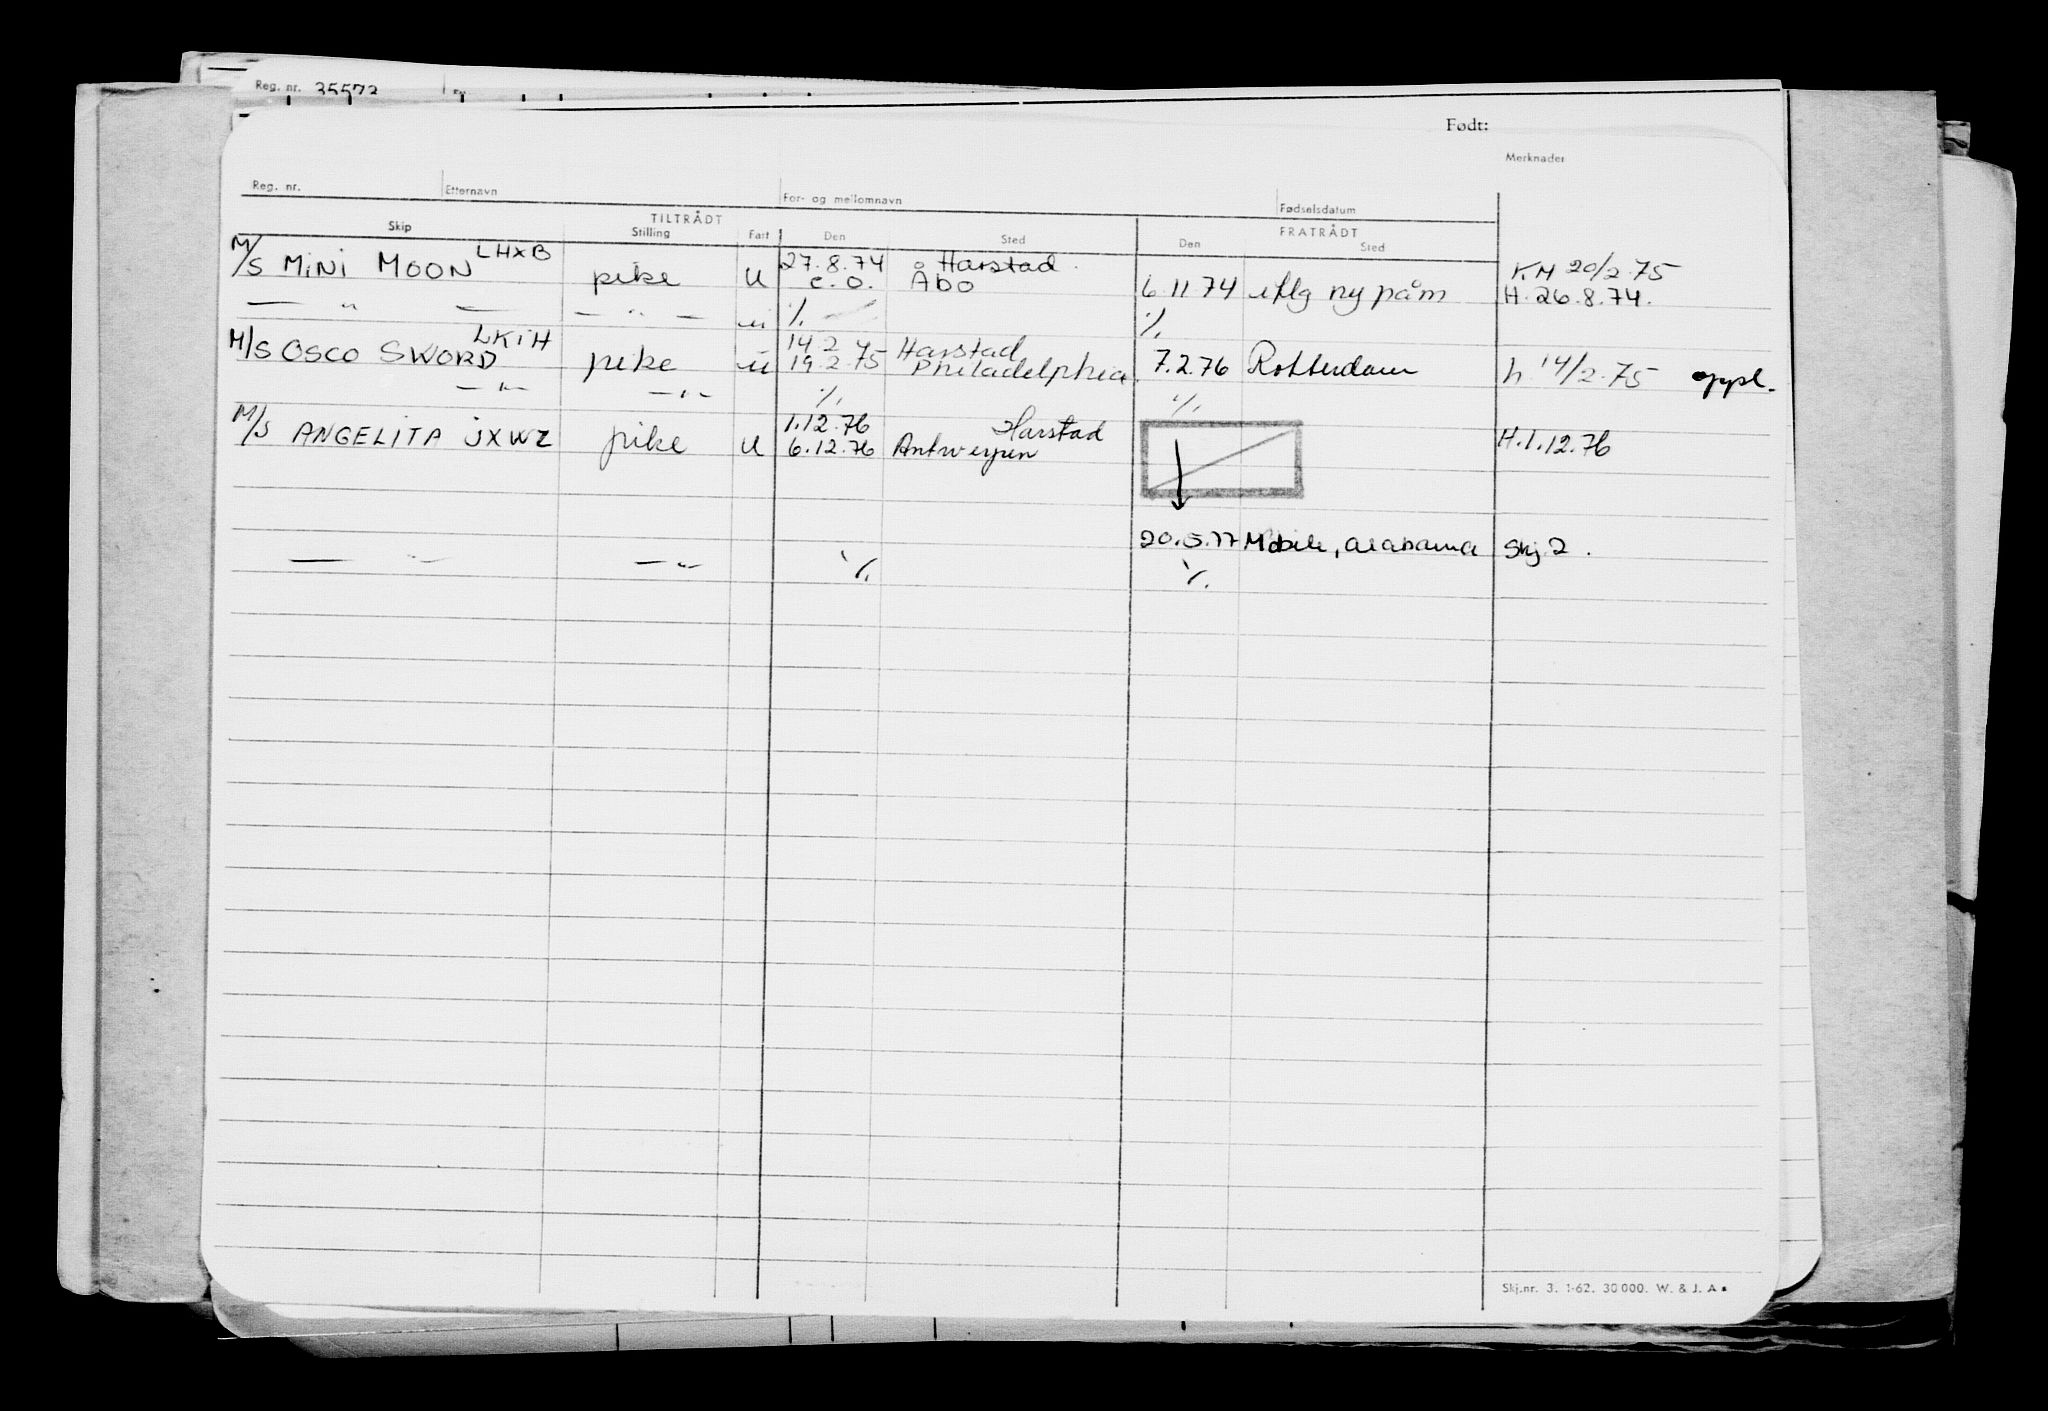 Reg. nr. 35573
Født:
Merknader
Reg. nr. Etternavn For- og mellomnavn Fødselsdatum
TILTRÅDT FRATRÅDT
Skip Stilling Fart Den Sted Den Sted
M/S MINI MOON LHXB pike u 27.8.74 Harstad KM 20/2.75
e.o. Åbo 6.11.74 iflg ny påm H. 26.8.74.
— " — — " — u ·/. ·/.
M/S OSCO SWORD LKIH pike u 14.2.75 Harstad
19.2.75 Philadelphia 7.2.76 Rotterdam h. 14/2.75 oppl.
— " — — " — ·/. ·/.
M/S ANGELITA JXWZ pike u 1.12.76 Harstad
6.12.76 Antwerpen H. 1.12.76
20.5.77 Mobile, Alabama Skj. 2.
— " — — " — ·/. ·/.
Skj.nr. 3. 1-62. 30 000. W. & J. A